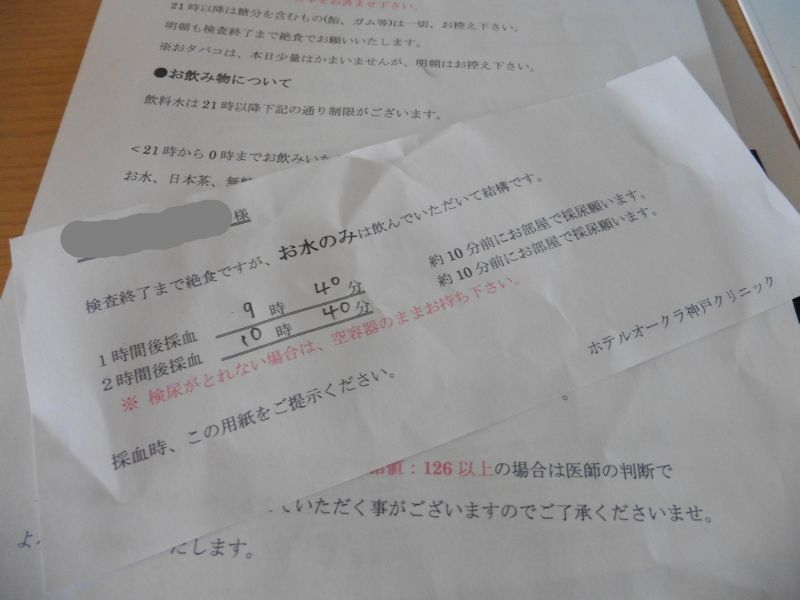 21時以降は糖分を含むもの(飴、ガム等)は一切、お控え下さい。
明朝も検査終了まで絶食でお願いいたします。
※おタバコは、本日少量はかまいませんが、明朝はお控え下さい。
●お飲み物について
飲料水は21時以降下記の通り制限がございます。
<21時から0時までお飲みいた
お水、日本茶、無
様
検査終了まで絶食ですが、お水のみは飲んでいただいて結構です。
1時間後採血 9時 40分 約10分前にお部屋で採尿願います。
2時間後採血 10時 40分 約10分前にお部屋で採尿願います。
※ 検尿がとれない場合は、空容器のままお持ち下さい。
採血時、この用紙をご提示ください。
ホテルオークラ神戸クリニック
値:126以上の場合は医師の判断で
いただく事がございますのでご了承くださいませ。
よ
たします。